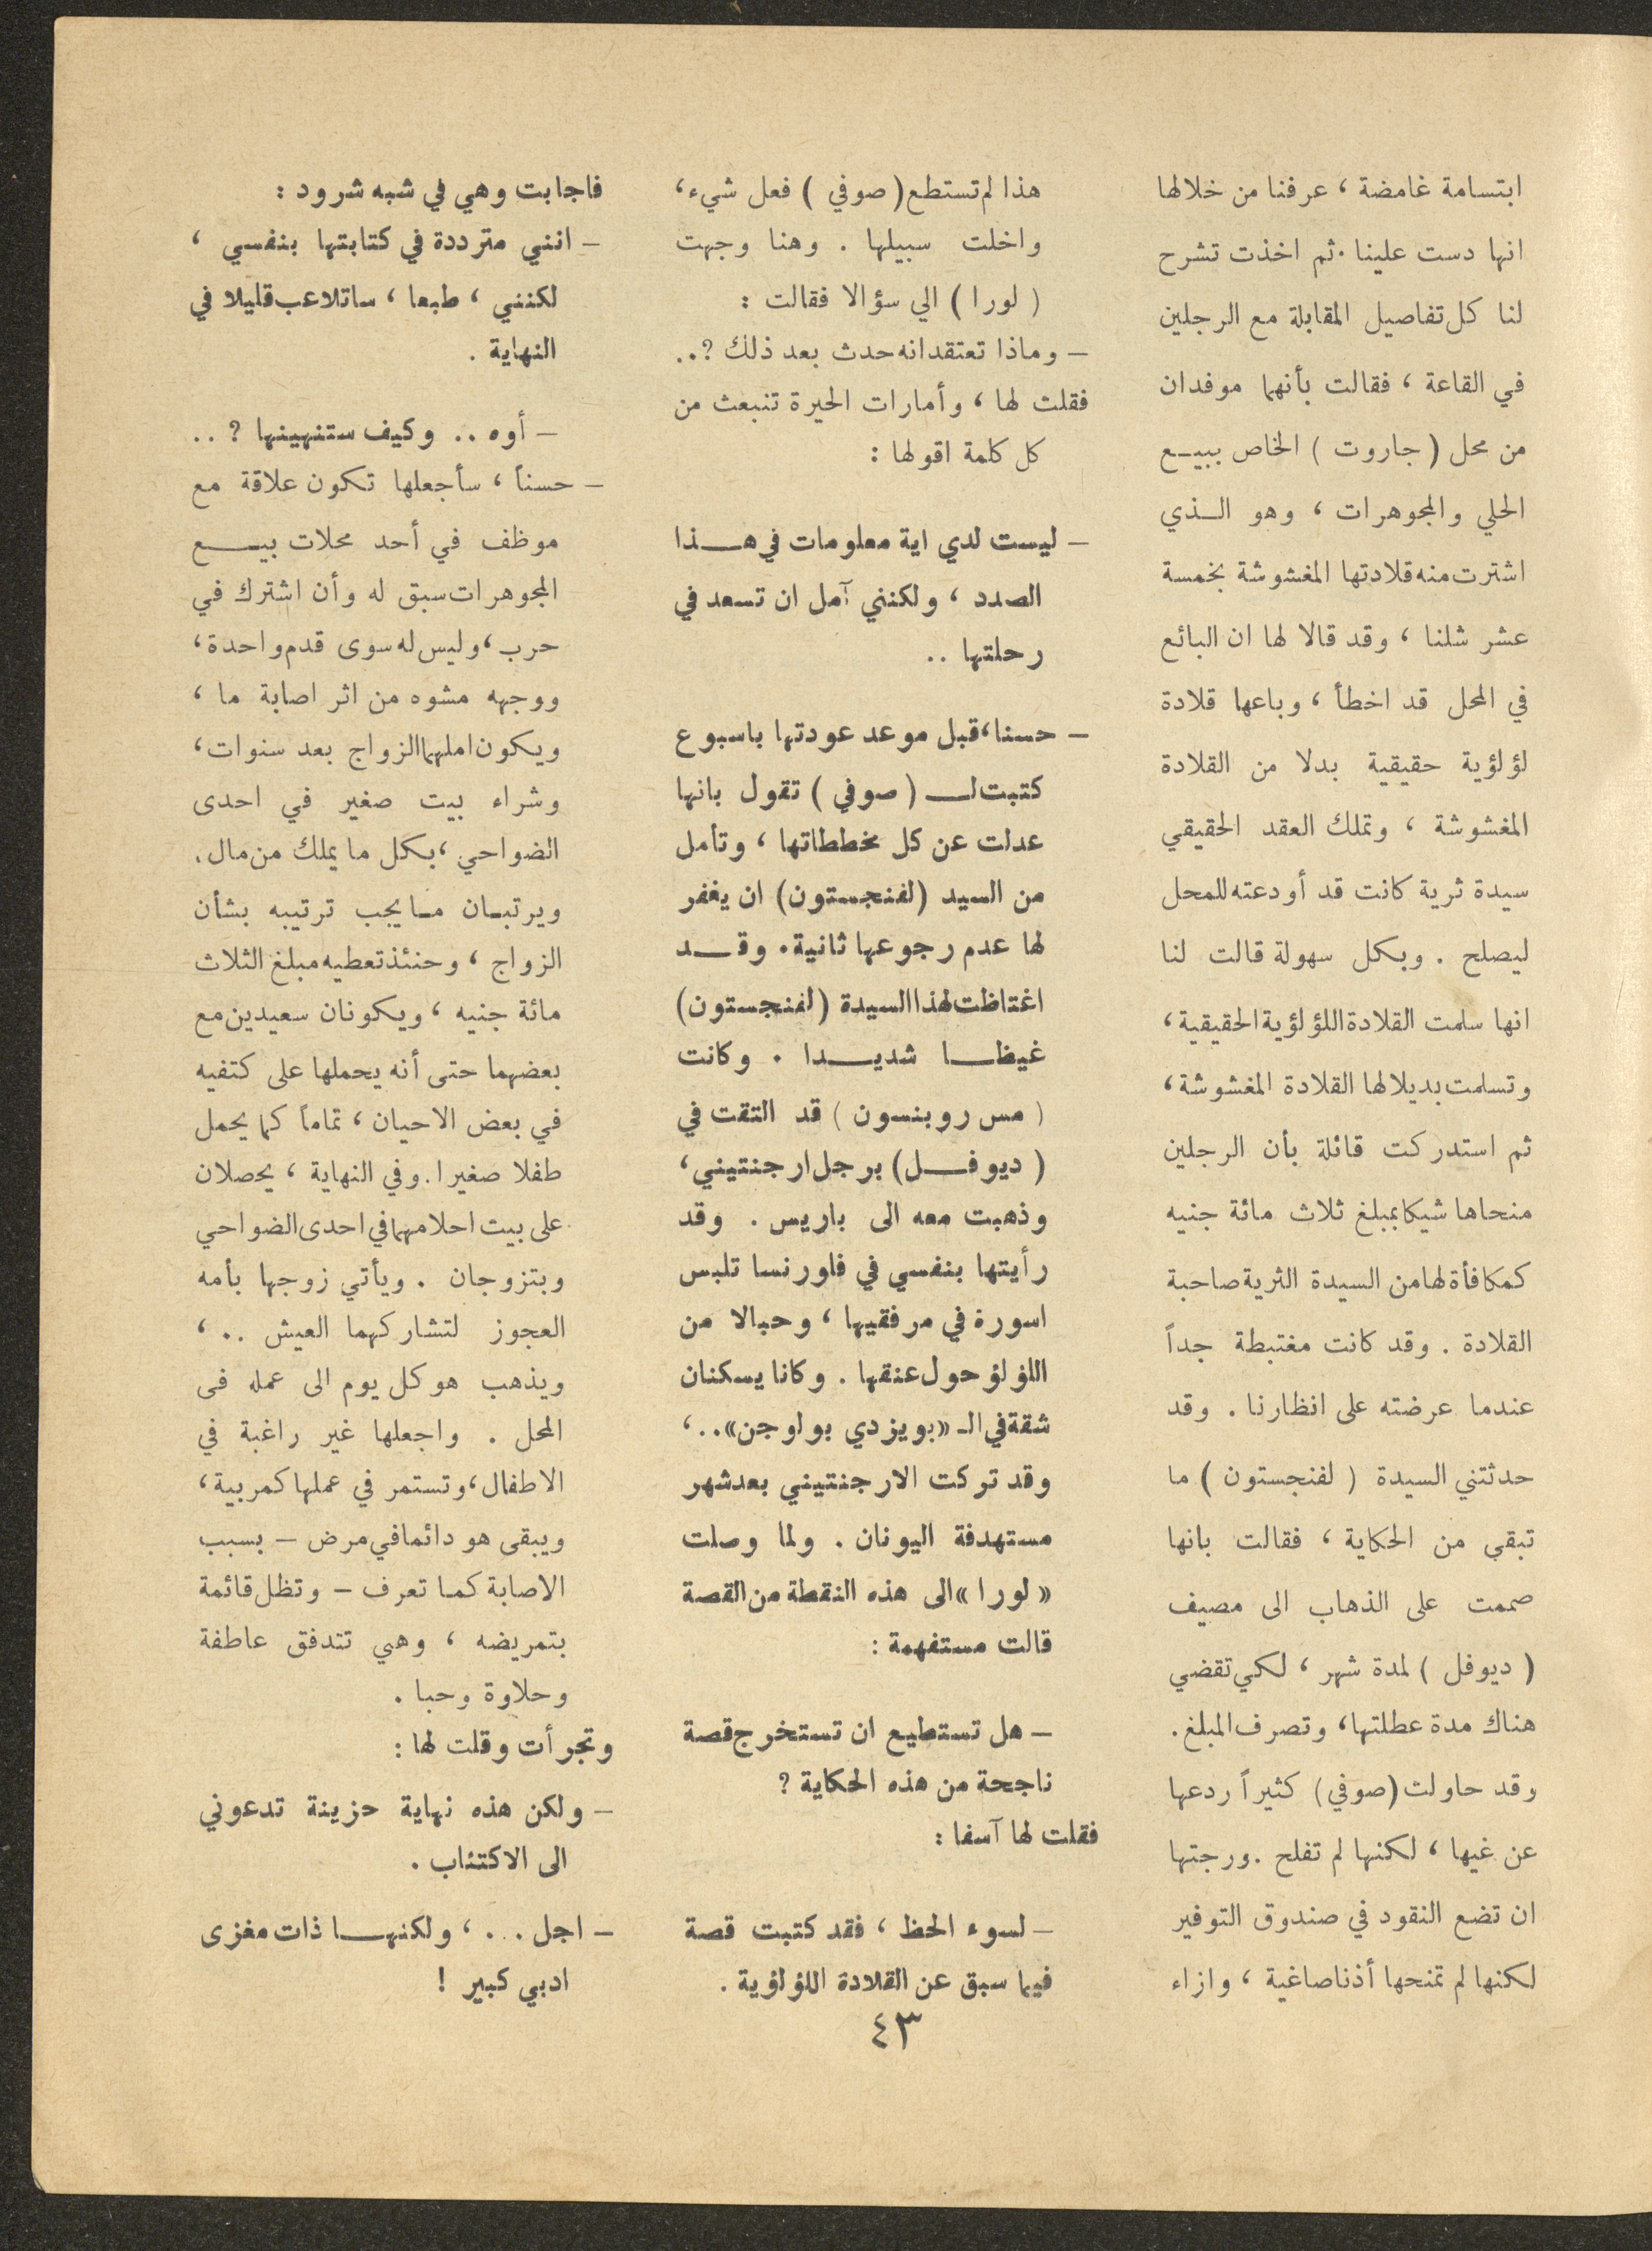 ابتسامة غامضة ، عرفنا من خلالها
انها دست علينا . ثم اخذت تشرح
لنا كل تفاصيل المقابلة مع الرجلين
في القاعة ، فقالت بأنهما موفدان
من محل ( جاروت ) الخاص ببيـع
الحلي والمجوهرات ، وهو الـذي
اشترت منه قلادتها المغشوشة بخمسة
عشر شلنا ، وقد قالا لها ان البائع
في المحل قد اخطأ ، وباعها قلادة
لؤلؤية حقيقية بدلا من القلادة
المغشوشة ، وتملك العقد الحقيقي
سيدة ثرية كانت قد أودعته للمحل
ليصلح . وبكل سهولة قالت لنا
انها سلمت القلادة اللؤلؤية الحقيقية ،
وتسلمت بديلا لها القلادة المغشوشة ،
ثم استدركت قائلة بأن الرجلين
منحاها شيكا بمبلغ ثلاث مائة جنيه
كمكافأة لها من السيدة الثرية صاحبة
القلادة . وقد كانت مغتبطة جداً
عندما عرضته على انظارنا . وقد
حدثتني السيدة ( لفنجستون ) ما
تبقى من الحكاية ، فقالت بانها
صممت على الذهاب الى مصيف
( ديوفل ) لمدة شهر ، لكي تقضي
هناك مدة عطلتها ، وتصرف المبلغ .
وقد حاولت ( صوفي ) كثيراً ردعها
عن غيها ، لكنها لم تفلح . ورجتها
ان تضع النقود في صندوق التوفير
لكنها لم تمنحها أذنا صاغية ، وازاء
هذا لم تستطع ( صوفي ) فعل شيء ،
واخلت سبيلها . وهنا وجهت
( لورا ) الي سؤالا فقالت :
– وماذا تعتقد انه حدث بعد ذلك ؟..
فقلت لها ، وأمارات الحيرة تنبعث من
كل كلمة اقولها :
– ليست لدي اية معلومات في هـــذا
الصدد ، ولكنني آمل ان تسعد في
رحلتها ..
– حسنا ، قبل موعد عودتها باسبوع
كتبت لـــ ( صوفي ) تقول بانها
عدلت عن كل مخططاتها ، وتأمل
من السيد ( لفنجستون ) ان يغفر
لها عدم رجوعها ثانية . وقــد
اغتاظت لهذا السيدة ( لفنجستون )
غيظــا شديــدا . وكانت
( مس روبنسون ) قد التقت في
( ديوفــل ) برجل ارجنتيني ،
وذهبت معه الى باريس . وقد
رأيتها بنفسي في فاورنسا تلبس
اسورة في مرفقيها ، وحبالا من
اللؤلؤ حول عنقها . وكانا يسكنان
شقة في الـ «بويزدي بولوجن» .. ،
وقد تركت الارجنتيني بعد شهر
مستهدفة اليونان . ولما وصلت
« لورا » الى هذه النقطة من القصة
قالت مستفهمة :
– هل تستطيع ان تستخرج قصة
ناجحة من هذه الحكاية ؟
فقلت لها آسفا :
– لسوء الحظ ، فقد كتبت قصة
فيما سبق عن القلادة اللؤلؤية .
فاجابت وهي في شبه شرود :
– انني مترددة في كتابتها بنفسي ،
لكنني ، طبعا ، ساتلاعب قليلا في
النهاية .
– أوه .. وكيف ستنهينها ؟ ..
– حسناً ، سأجعلها تكون علاقة مع
موظف في أحد محلات بيـــع
المجوهرات سبق له وأن اشترك في
حرب ، وليس له سوى قدم واحدة ،
ووجهه مشوه من اثر اصابة ما ،
ويكون املهما الزواج بعد سنوات ،
وشراء بيت صغير في احدى
الضواحي ، بكل ما يملك من مال .
ويرتبـان مـا يجب ترتيبه بشأن
الزواج ، وحنئذ تعطيه مبلغ الثلاث
مائة جنيه ، ويكونان سعيدين مع
بعضهما حتى أنه يحملها على كتفيه
في بعض الاحيان ، تماماً كما يحمل
طفلا صغيرا . وفي النهاية ، يحصلان
على بيت احلامهما في احدى الضواحي
ويتزوجان . ويأتي زوجها بأمه
العجوز لتشاركهما العيش .. ،
ويذهب هو كل يوم الى عمله فى
المحل . واجعلها غير راغبة في
الاطفال ، وتستمر في عملها كمربية ،
ويبقى هو دائما في مرض – بسبب
الاصابة كما تعرف – وتظل قائمة
بتمريضه ، وهي تتدفق عاطفة
وحلاوة وحبا .
وتجرأت وقلت لها :
– ولكن هذه نهاية حزينة تدعوني
الى الاكتئاب .
– اجل ... ، ولكنهـــا ذات مغزى
ادبي كبير !
٤٣